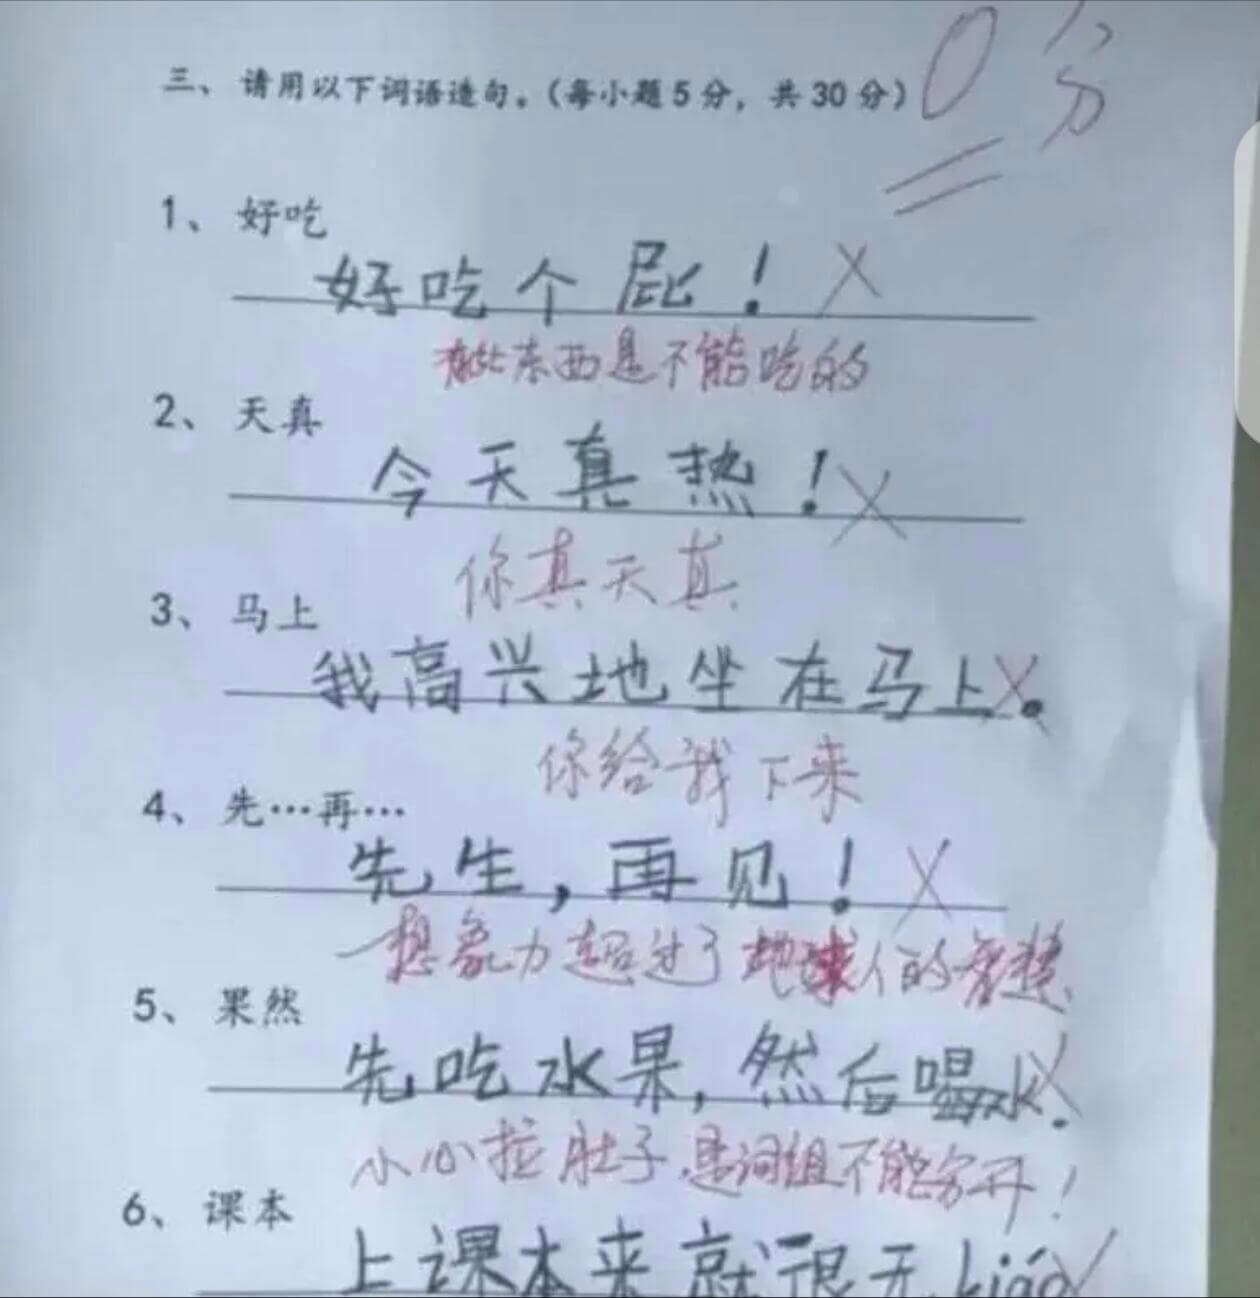 三、请用以下词语造句。（每小题5分，共30分）
0分
1、好吃
好吃个屁！
有些东西是不能吃的
2、天真
今天真热！
你真天真
3、马上
我高兴地坐在马上。
你给我下来
4、先…再…
先生，再见！
想象力超过了地球人的智慧
5、果然
先吃水果，然后喝水.
小心拉肚子.是词组不能分开！
6、课本
上课本来就很无liáo